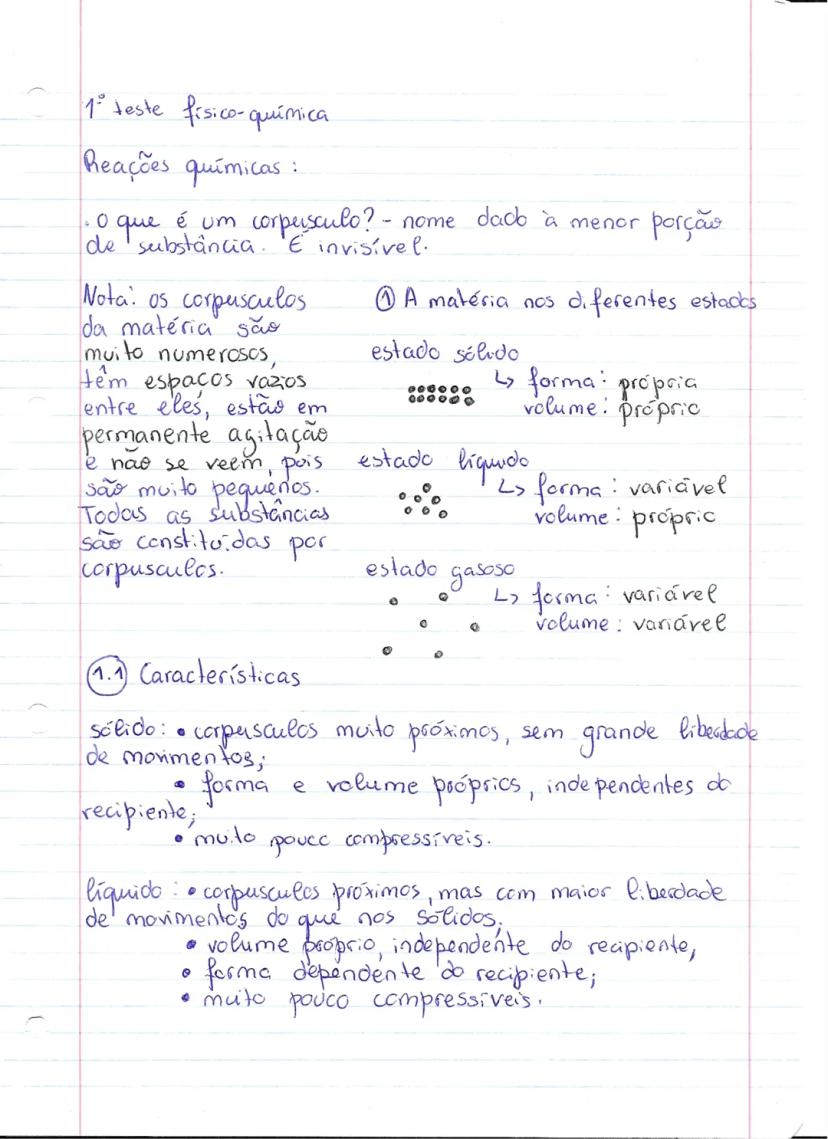 1º teste físico-química
Reações químicas :
. O que é um corpúsculo? - nome dado à menor porção
de substância. É invisível.
Nota: os corpusculos
da matéria são
muito numerosos,
têm espaços vazios
entre eles, estão em
permanente agitação
e não se veem, pois
são muito pequenos.
Todas as substâncias
são constituídas por
corpusculos.
① A matéria nos diferentes estados
estado sólido
↳ forma: própria
volume: próprio
estado líquido
↳ forma: variável
volume: próprio
estado gasoso
↳ forma: variável
volume: variável
1.1 Características
sólido: • corpusculos muito próximos, sem grande liberdade
de movimentos;
• forma e volume próprios, independentes do
recipiente;
• muito pouco compressíveis.
líquido: • corpusculos próximos, mas com maior liberdade
de movimentos do que nos sólidos;
• volume próprio, independente do recipiente;
• forma dependente do recipiente;
• muito pouco compressíveis.